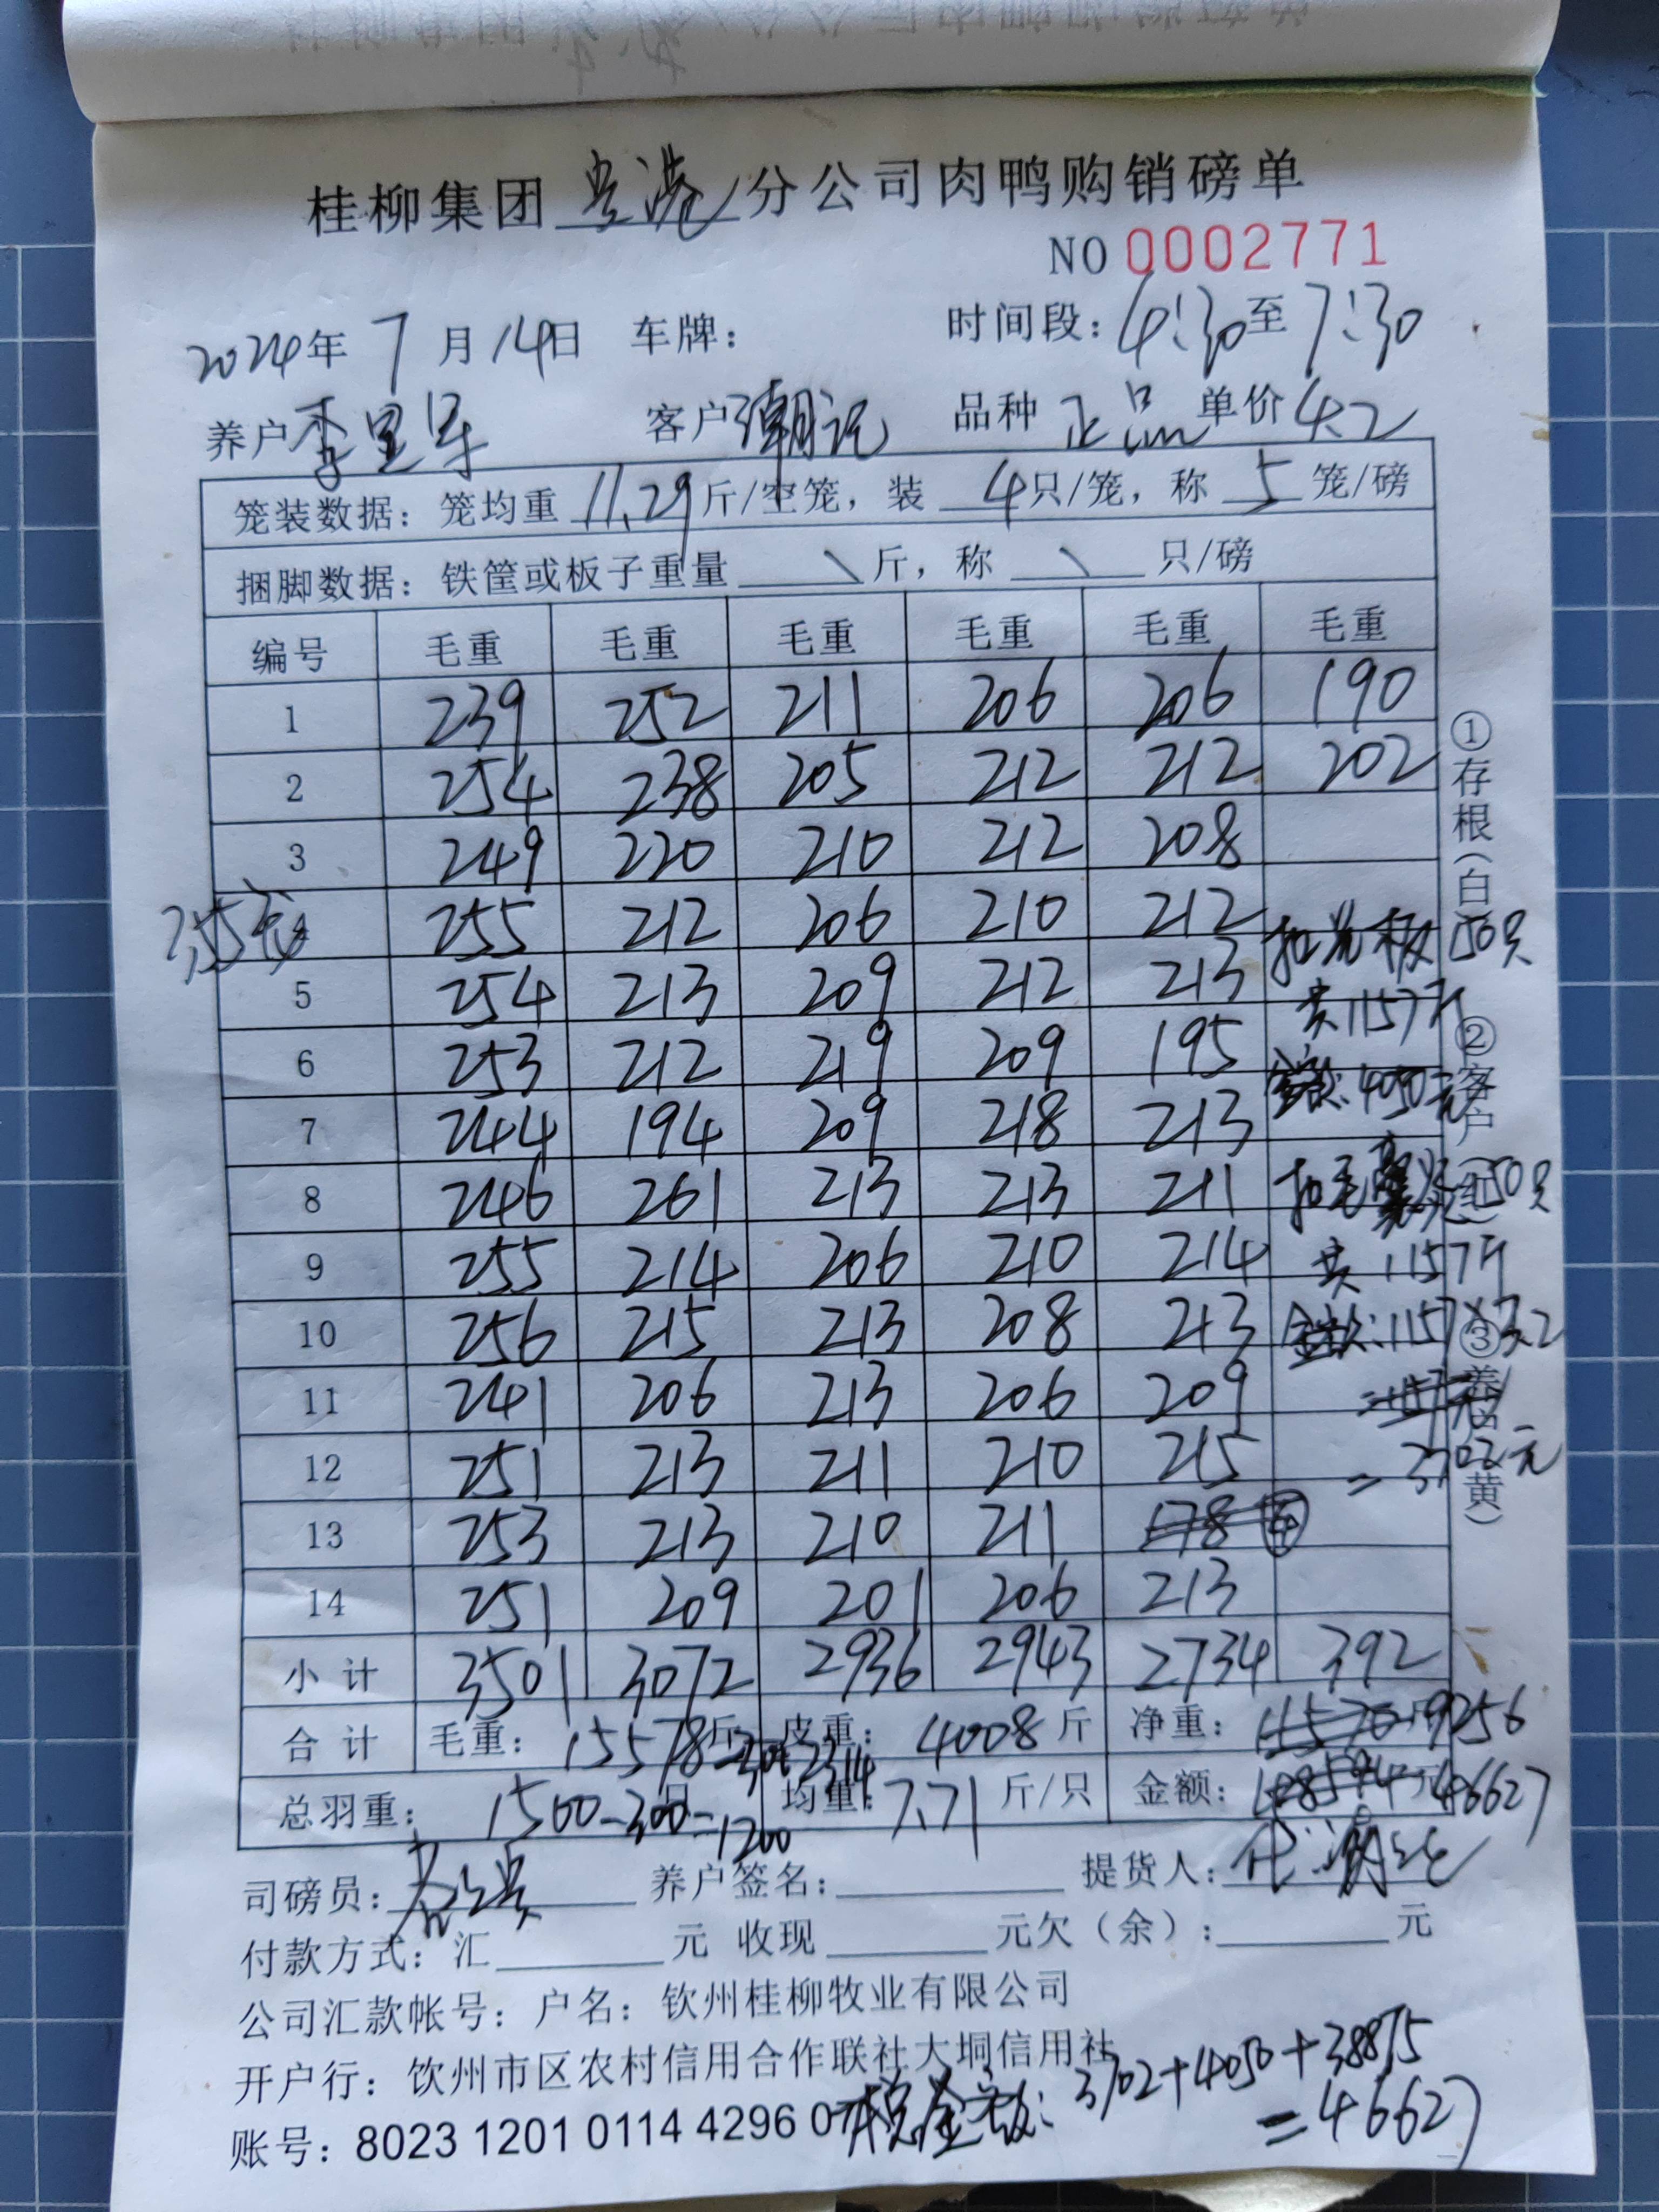 桂柳集团贵港分公司肉鸭购销磅单
NO 0002771
2024年 7月14日 车牌： 时间段：4:30至7:30
养户李里军 客户潮记 品种 正品 单价 4.2
笼装数据：笼均重 11.29斤/空笼，装 4只/笼，称 5 笼/磅
捆脚数据：铁筐或板子重量 \ 斤，称 \ 只/磅
编号 毛重 毛重 毛重 毛重 毛重 毛重
1 239 252 211 206 206 190
2 254 238 205 212 212 202
3 249 220 210 212 208
4 255 212 206 210 212
5 254 213 209 212 213
6 253 212 219 209 195
7 244 194 209 218 213
8 246 261 213 213 211
9 255 214 206 210 214
10 256 215 213 208 213
11 241 206 213 206 209
12 251 213 211 210 215
13 253 213 210 211 178
14 251 209 201 206 213
小计 3501 3072 2936 2943 2734 392
合计 毛重：15578斤 皮重：4008斤 净重：11570 9256
总羽重：1500-300=1200 均重：7.71斤/只 金额：48594元 46627
150只
共1157斤
金额：4050元
150只
共1157斤
金额：1157×3.2
=3702元
①存根（白）②客户（红）③养户（黄）
司磅员： 养户签名： 提货人：
付款方式：汇 元 收现 元欠（余）： 元
公司汇款帐号：户名：钦州桂柳牧业有限公司
开户行：钦州市区农村信用合作联社大垌信用社
账号：8023 1201 0114 4296 07
总金额：3702+4050+38875
=46627